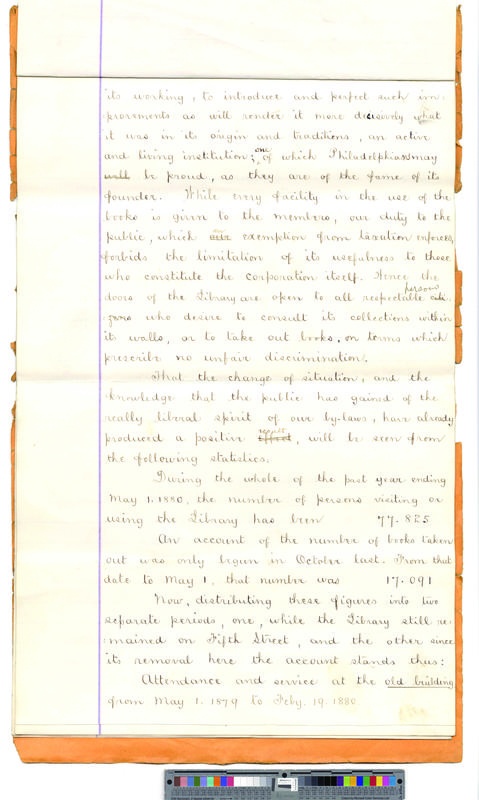 its working, to introduce and perfect such im-
provements as will render it more decisively what
it was in its origin and traditions, an active
and living institution; one of which Philadelphians may
well be proud, as they are of the fame of its
founder. While every facility in the use of the
books is given to the members, our duty to the
public, which our exemption from taxation enforces,
forbids the limitation of its usefulness to those
who constitute the corporation itself. Hence the
doors of the Library are open to all respectable persons citi-
zens who desire to consult its collections within
its walls, or to take out books, on terms which
prescribe no unfair discrimination.
That the change of situation, and the
knowledge that the public has gained of the
really liberal spirit of our by-laws, have already
produced a positive effect result, will be seen from
the following statistics.
During the whole of the past year ending
May 1. 1880, the number of persons visiting or
using the Library has been 77.825
An account of the number of books taken
out was only begun in October last. From that
date to May 1, that number was 17.091
Now, distributing these figures into two
separate periods, one, while the Library still re-
mained on Fifth Street, and the other since
its removal here the account stands thus:
Attendance and service at the old building
from May 1. 1879 to Feby. 19. 1880.